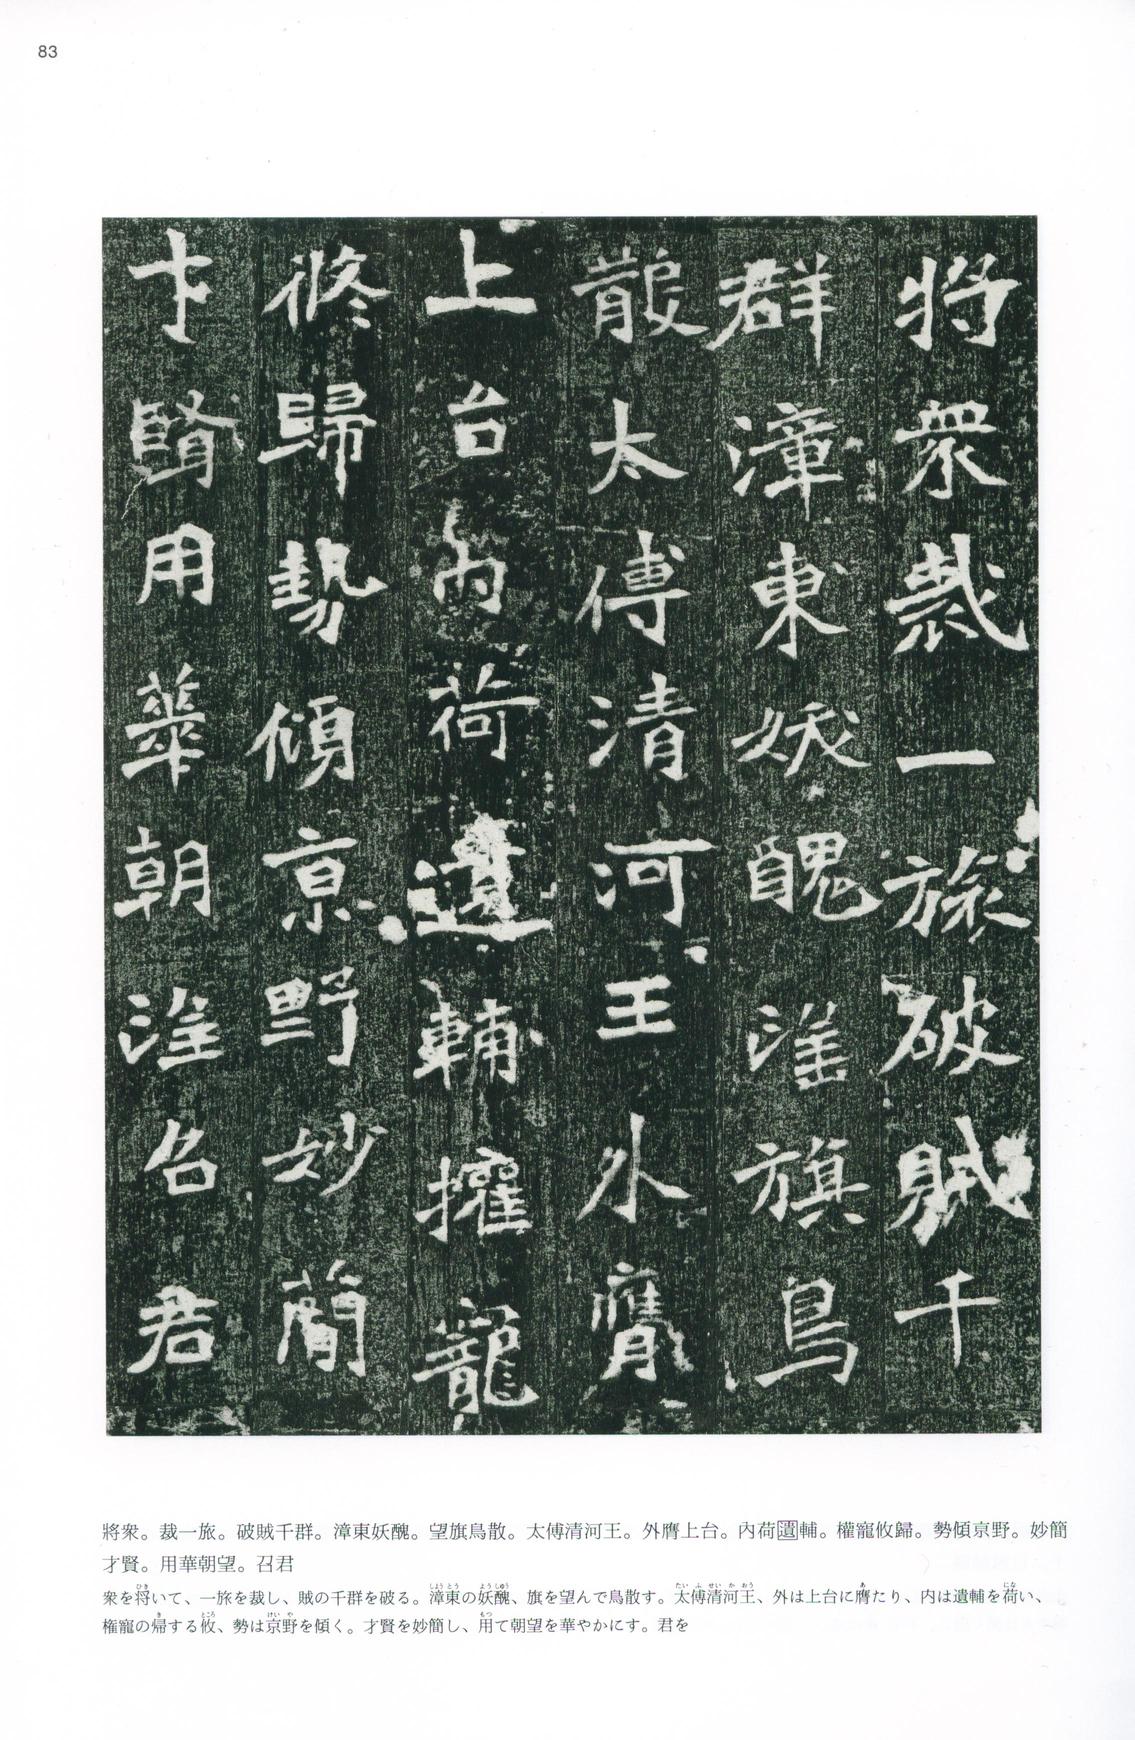 83
將衆裁一旅破賊千
群漳東妖醜望旗鳥
散太傅清河王外膺
上台內荷遺輔權寵
攸歸勢傾京野妙簡
才賢用華朝望召君
將衆。裁一旅。破賊千群。漳東妖醜。望旗鳥散。太傅清河王。外膺上台。內荷遺輔。權寵攸歸。勢傾京野。妙簡
才賢。用華朝望。召君
衆を将いて、一旅を裁し、賊の千群を破る。漳東の妖醜、旗を望んで鳥散す。太傅清河王、外は上台に膺たり、内は遺輔を荷い、
権寵の帰する攸、勢は京野を傾く。才賢を妙簡し、用て朝望を華やかにす。君を